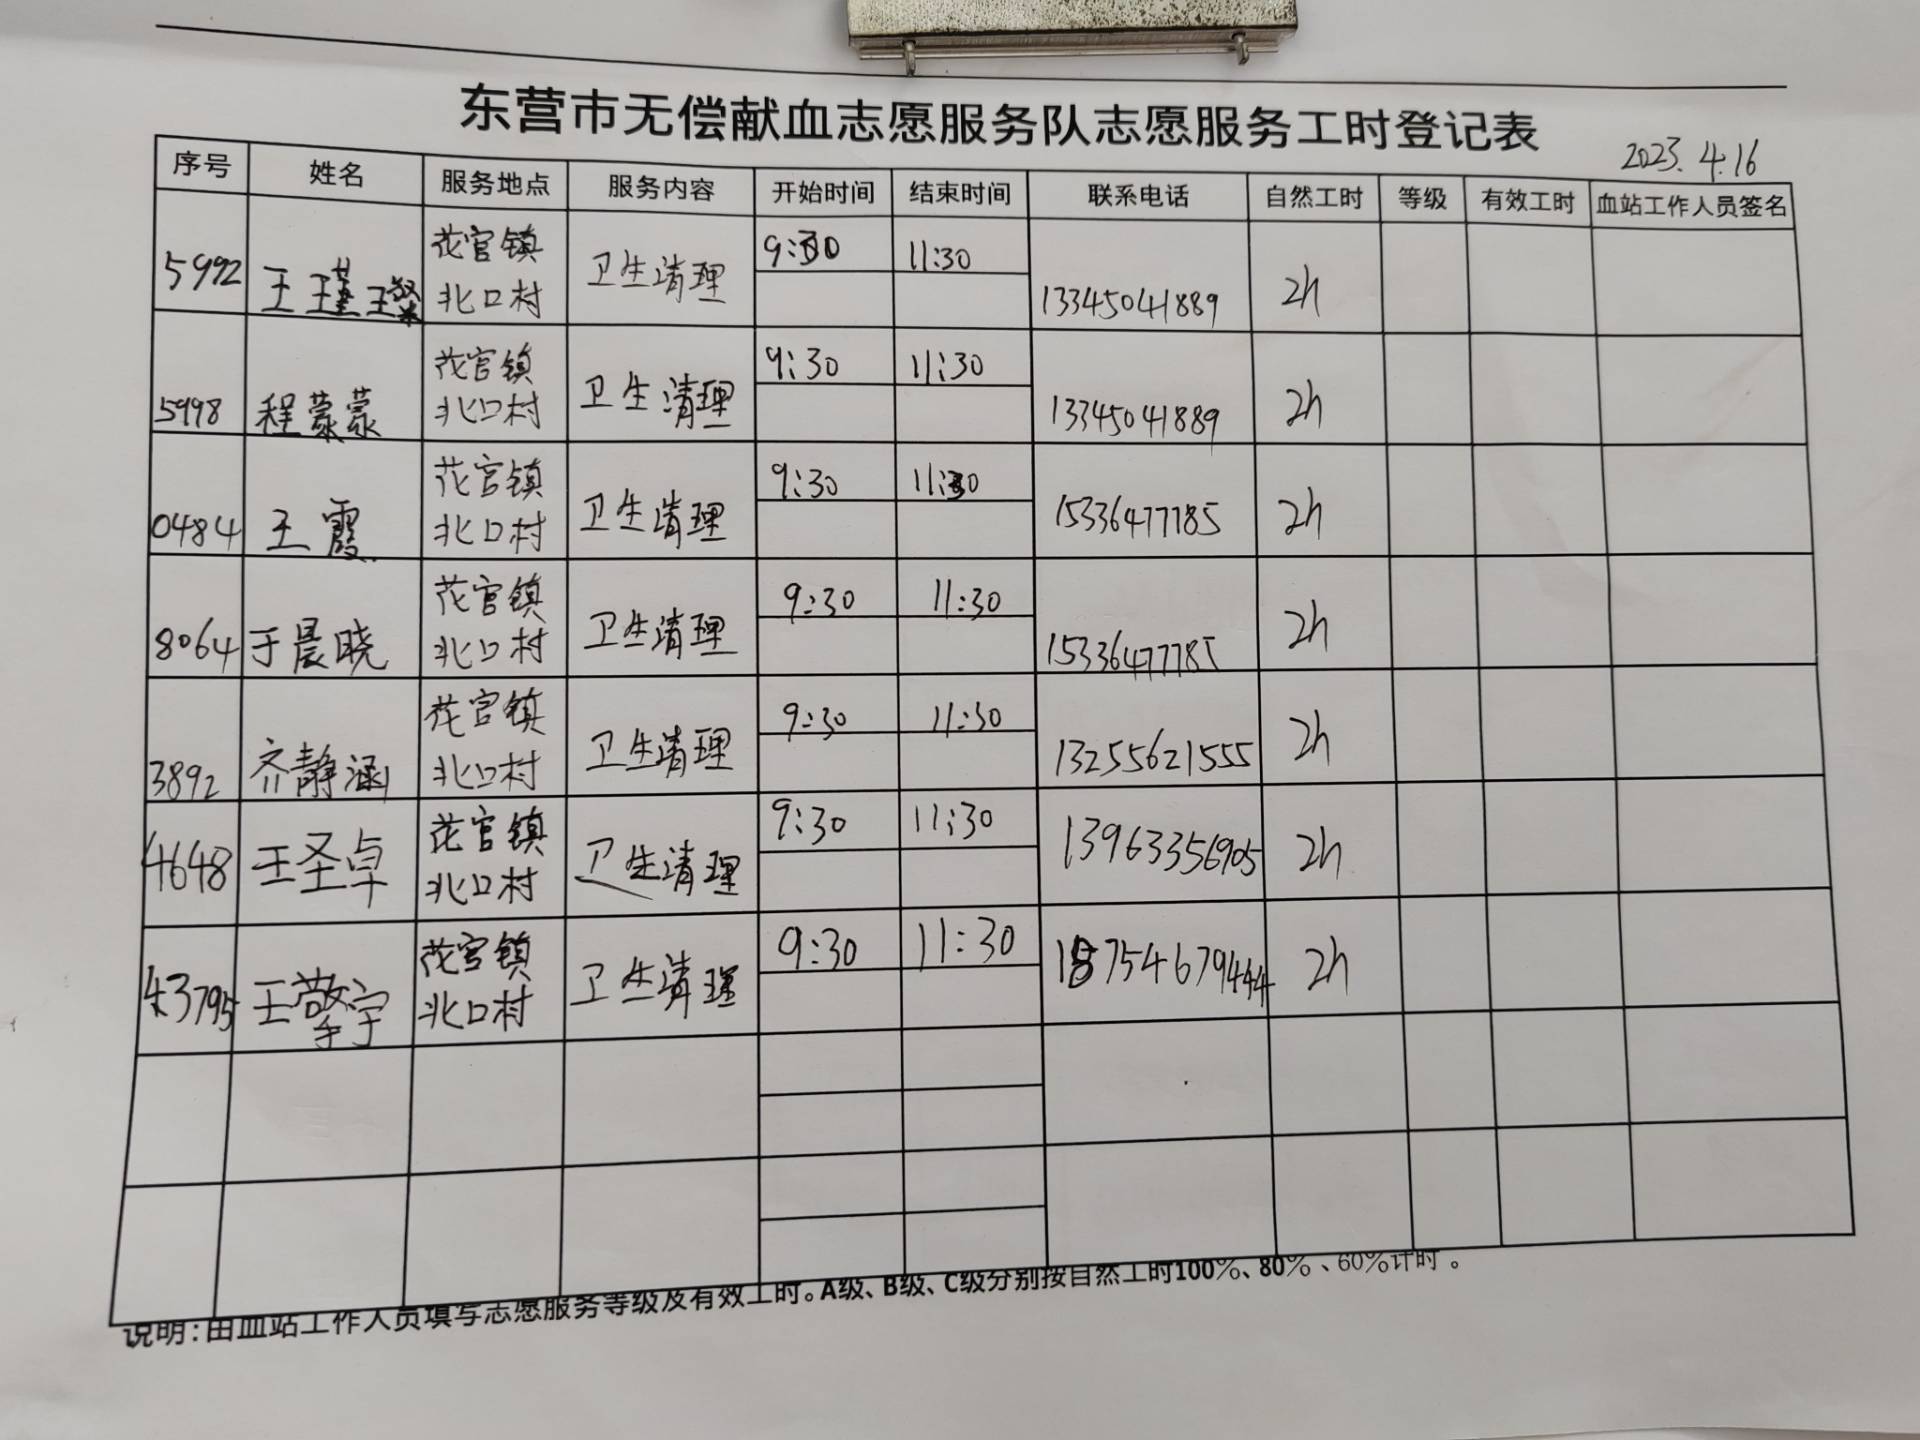 东营市无偿献血志愿服务队志愿服务工时登记表
2023.4.16
序号 姓名 服务地点 服务内容 开始时间 结束时间 联系电话 自然工时 等级 有效工时 血站工作人员签名
5992 王瑾璨 花官镇北口村 卫生清理 9:30 11:30 13345041889 2h
5998 程蒙蒙 花官镇北口村 卫生清理 9:30 11:30 13345041889 2h
0484 王霞 花官镇北口村 卫生清理 9:30 11:30 15336477785 2h
8064 于晨晓 花官镇北口村 卫生清理 9:30 11:30 15336477785 2h
3892 齐静涵 花官镇北口村 卫生清理 9:30 11:30 13255621555 2h
4648 王圣卓 花官镇北口村 卫生清理 9:30 11:30 13963356905 2h
王擎宇 花官镇北口村 卫生清理 9:30 11:30 2h
说明:由血站工作人员填写志愿服务等级及有效工时。A级、B级、C级分别按自然工时100%、80%、60%计时。